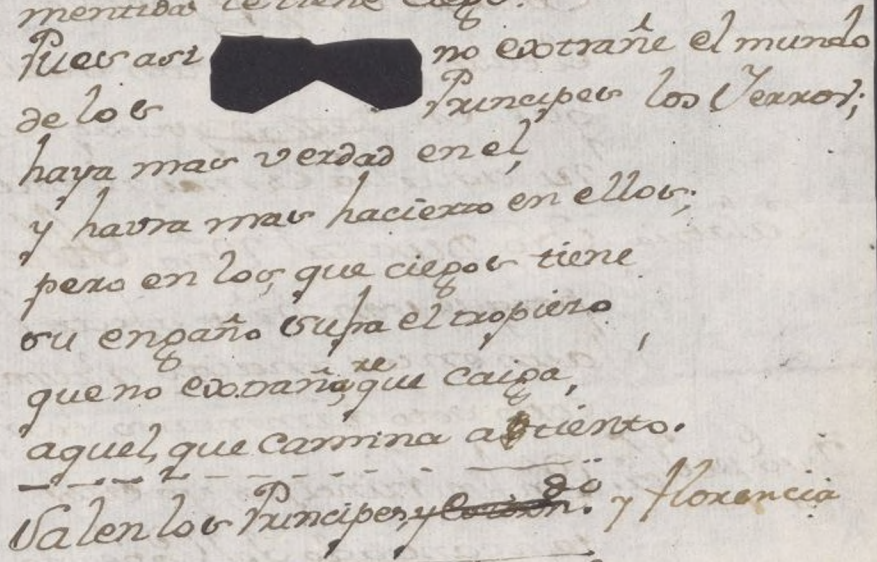 mentida le tiene ciego.
Pues asi no extrañe el mundo
de los Principes los Yerros;
haya mas verdad en el,
y havra mas hacierto en ellos;
pero en los, que ciegos tiene
su engaño sufra el tropiezo
que no extraña, que caiga,
aquel, que camina a tiento.
Salen los Principes, y Florencia